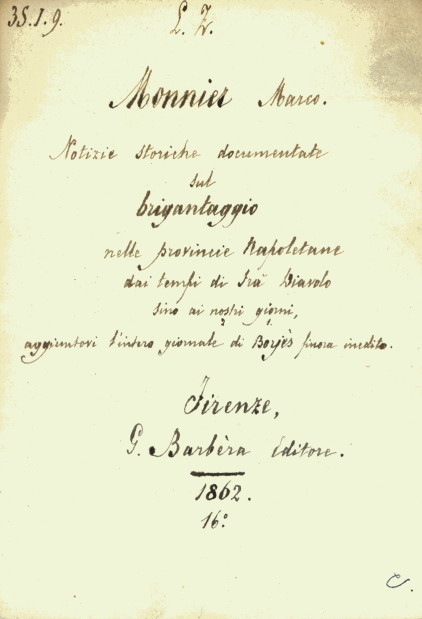 35.1.9.
L. Z.
Monnier Marco.
Notizie storiche documentate
sul
brigantaggio
nelle provincie Napoletane
dai tempi di Frà Diavolo
sino ai nostri giorni,
aggiuntovi l'intero giornale di Borjès finora inedito.
Firenze,
G. Barbèra Editore.
1862.
16°
C.